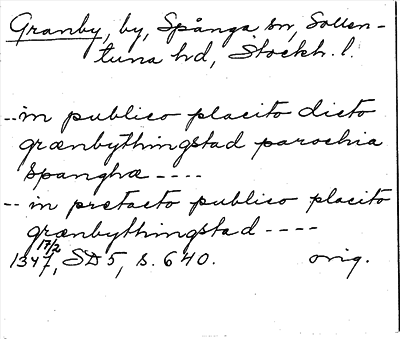 Granby, by, Spånga sn, Sollen-
tuna hd, Stockh. l.
-- in publico placito dicto
grænbythingstad parochia
Spanghæ ----
-- in prefacto publico placito
grænbythingstad ----
17/2
1347, SD 5, s. 640. orig.